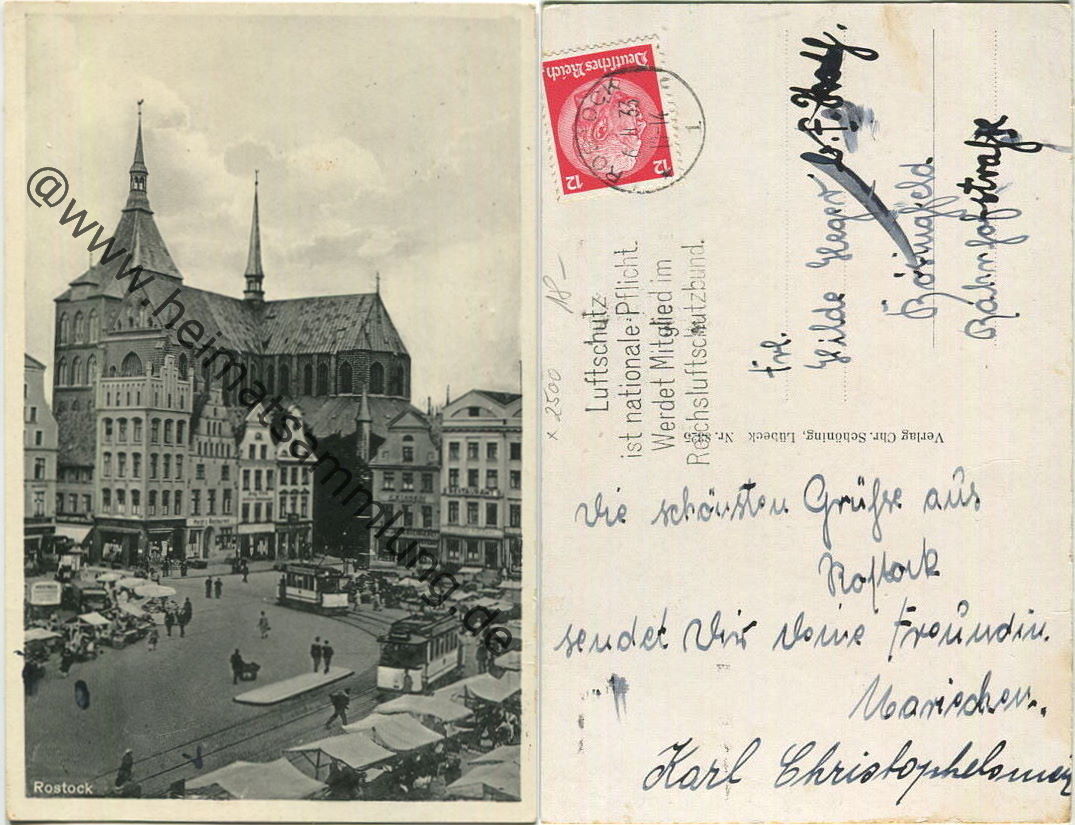 @www.heimatsammlung.de
RESTAURANT
Rostock
Deutsches Reich
12 12
ROSTOCK
1
33
14
18-
x 2500
Luftschutz
ist nationale Pflicht.
Werdet Mitglied im
Reichsluftschutzbund.
Verlag Chr. Schöning, Lübeck Nr.
Frl.
Hilde Heger
Bahnhofstraße
Die schönsten Grüße aus
Rostock
sendet Dir Deine Freundin
Mariechen.
Karl